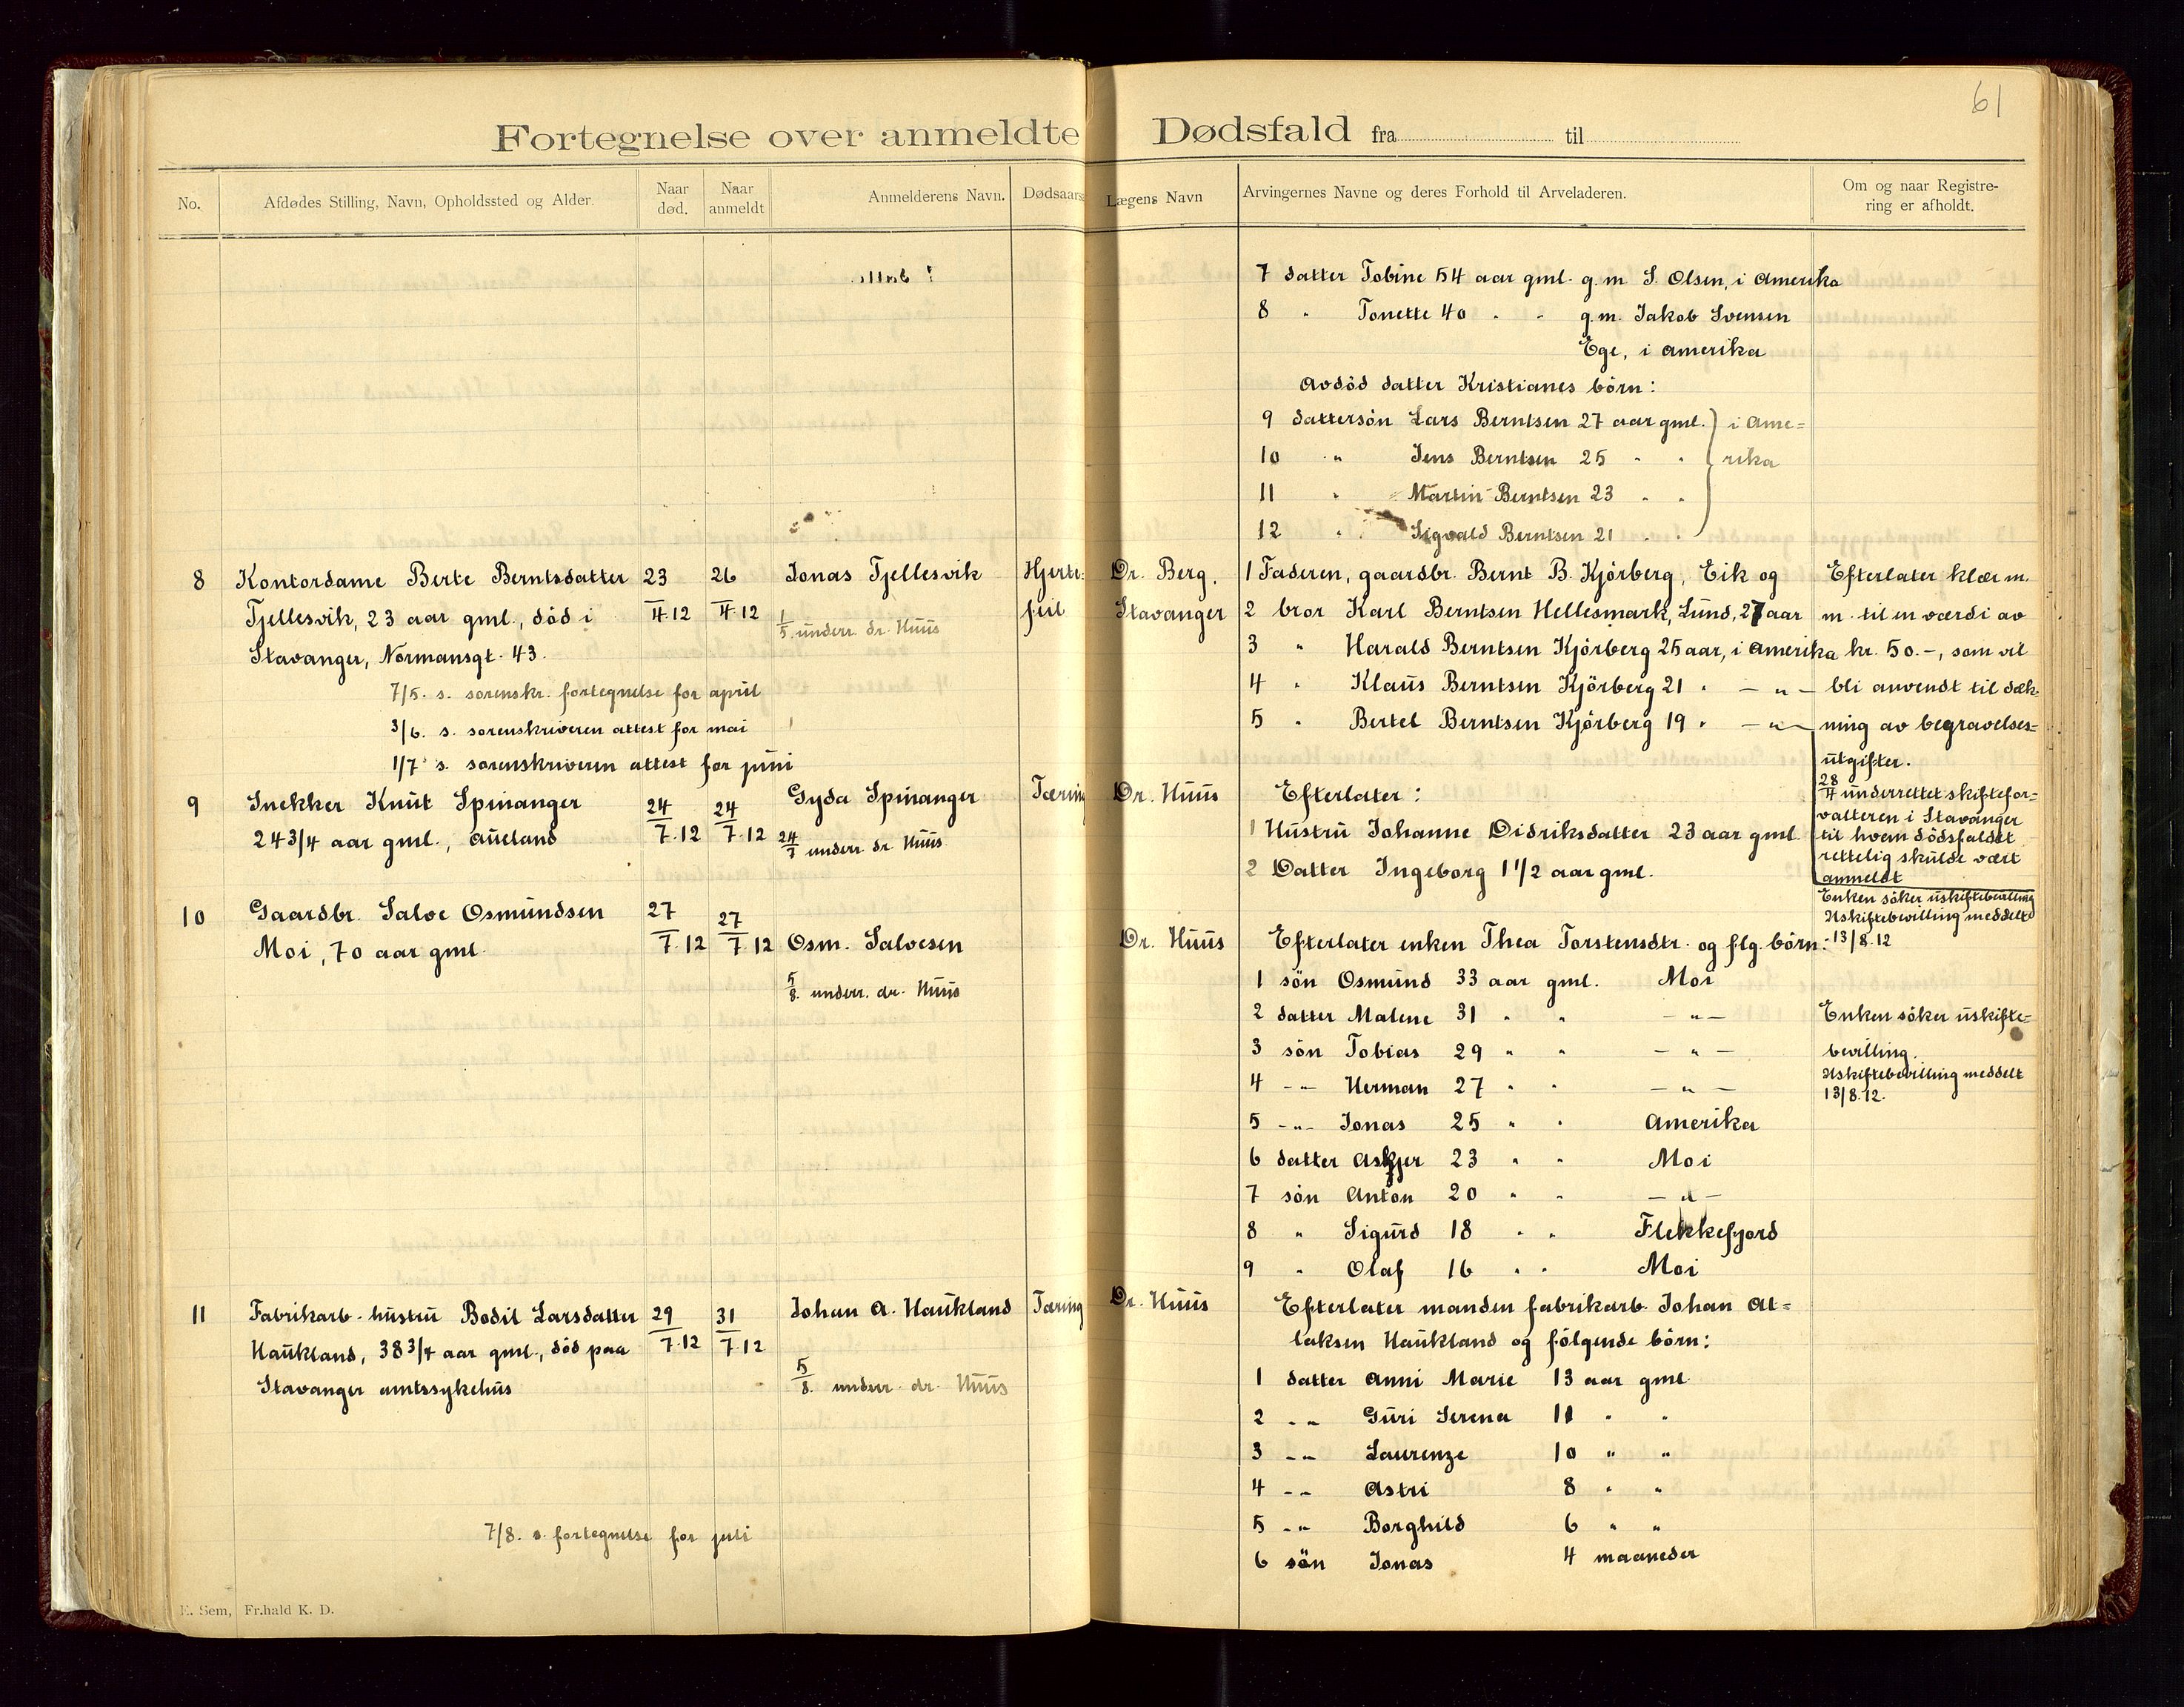 61
Fortegnelse over anmeldte Dødsfald fra til
No.
Afdødes Stilling, Navn, Opholdssted og Alder.
Naar død.
Naar anmeldt
Anmelderens Navn.
Dødsaars
Lægens Navn
Arvingernes Navne og deres Forhold til Arveladeren.
Om og naar Registre-
ring er afholdt.
7 datter Tobine 54 aar gml. g. m S. Olsen, i Amerika
8 " Tonette 40 " " g. m. Jakob Svensen
Ege, i Amerika
Avdöd datter Kristianes börn:
9 dattersön Lars Berntsen 27 aar gml. } i Ame=
10 " Jens Berntsen 25 " " rika
11 " Martin Berntsen 23 " "
12 " Sigvald Berntsen 21 " "
8 Kontordame Berte Berntsdatter
Tjellesvik, 23 aar gml., död i
Stavanger, Normansgt. 43.
23/4.12
26/4.12
Jonas Tjellesvik
1/5 underr. dr. Huus
Hjerte-
feil
Dr. Berg,
Stavanger
1 Faderen, gaardbr. Bernt B. Kjörberg, Eik og
2 bror Karl Berntsen Hellesmark, Lund, 27 aar
3 " Harald Berntsen Kjörberg 25 aar, i Amerika
4 " Klaus Berntsen Kjörberg 21 " — " —
5 " Bertel Berntsen Kjörberg 19 " — " —
Efterlater klær m.
m. til en værdi av
kr. 50.-, som vil
bli anvendt til dæk-
ning av begravelses=
utgifter.
28/4 underrettet skiftefor=
valteren i Stavanger
til hvem dödsfaldet
rettelig skulde vært
anmeldt
7/5. s. sorenskr. fortegnelse for april
3/6. s. sorenskriveren attest for mai
1/7 s. sorenskriveren attest for juni
9 Snekker Knut Spinanger
24 3/4 aar gml., Aueland
24/7.12
24/7.12
Gyda Spinanger
24/7 underr dr Huus
Tæring
Dr. Huus
Efterlater:
1 Hustru Johanne Didriksdatter 23 aar gml.
2 Datter Ingeborg 1 1/2 aar gml.
Enken söker uskiftebevilling
Uskiftebevilling meddelt
13/8.12
10 Gaardbr. Salve Osmundsen
Moi, 70 aar gml.
27/7.12
27/7.12
Osm. Salvesen
5/8. underr. dr. Huus
Dr. Huus
Efterlater enken Thea Torstensdtr. og flg. börn:
1 sön Osmund 33 aar gml. Moi
2 datter Malene 31 " " — " —
3 sön Tobias 29 " " — " —
4 -"- Herman 27 " " — " —
5 -"- Jonas 25 " " Amerika
6 datter Askjer 23 " " Moi
7 sön Anton 20 " " — " —
8 " Sigurd 18 " " Flekkefjord
9 " Olaf 16 " " Moi
Enken söker uskifte=
bevilling.
Uskiftebevilling meddelt
13/8.12.
11 Fabrikarb. hustru Bodil Larsdatter
Haukland, 38 3/4 aar gml., död paa
Stavanger amtssykehus
29/7.12
31/7.12
Johan A. Haukland
5/8. underr. dr. Huus
Tæring
Dr. Huus
Efterlater manden fabrikarb. Johan At=
laksen Haukland og fölgende börn:
1 datter Anni Marie 13 aar gml
2 -"- Guri Serena 11 " "
3 -"- Laurenze 10 " "
4 -"- Astri 8 " "
5 -"- Borghild 6 " "
6 sön Jonas 4 maaneder
7/8. s. fortegnelse for juli
E. Sem, Fr.hald K. D.